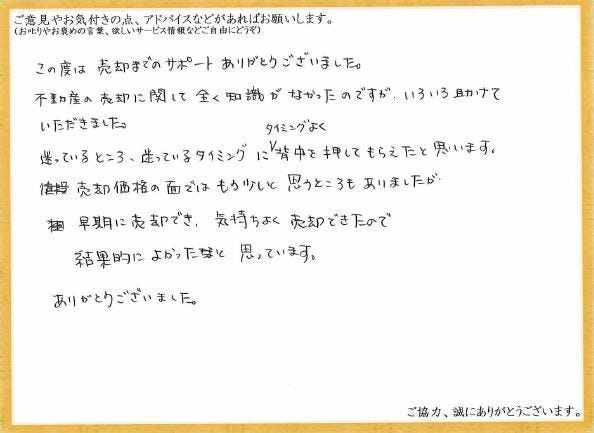 ご意見やお気付きの点、アドバイスなどがあればお願いします。
(お叱りやお褒めの言葉、欲しいサービス情報などご自由にどうぞ)
この度は 売却までのサポート ありがとうございました。
不動産の 売却に関して 全く知識が なかったのですが、いろいろ助けて
いただきました。
タイミングよく
迷っているところ、迷っているタイミングに背中を押してもらえたと思います。
売却価格の面では もう少しと 思うところも ありましたが
早期に売却でき、気持ちよく 売却できたので
結果的に よかったなと 思っています。
ありがとうございました。
ご協力、誠にありがとうございます。